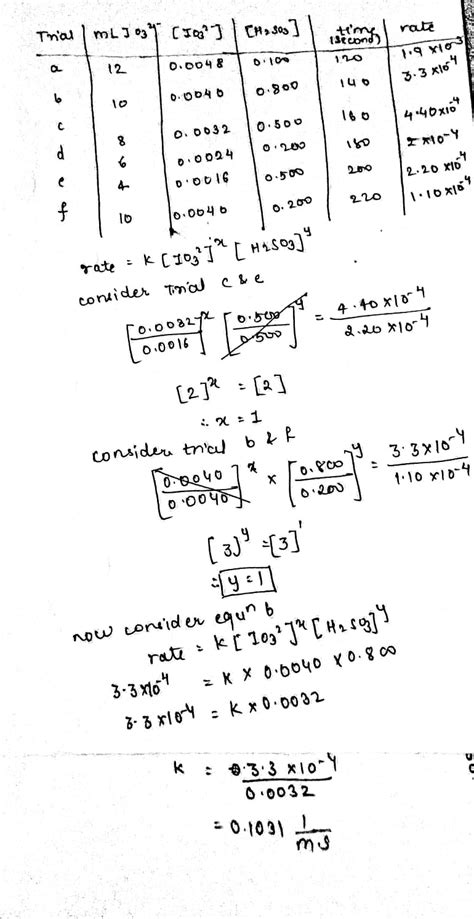 Trial | mL IO3²⁻ | [IO3²⁻] | [H2SO3] | time (second) | rate
a | 12 | 0.0048 | 0.100 | 120 | 1.9 x10³
b | 10 | 0.0040 | 0.800 | 140 | 3.3 x10⁻⁴
c | 8 | 0.0032 | 0.500 | 160 | 4.40x10⁻⁴
d | 6 | 0.0024 | 0.200 | 180 | 2 x10⁻⁴
e | 4 | 0.0016 | 0.500 | 200 | 2.20 x10⁻⁴
f | 10 | 0.0040 | 0.200 | 220 | 1.10 x10⁻⁴
rate = K [IO3²]ˣ [H2SO3]ʸ
consider Trial c & e
[0.0032/0.0016]ˣ [0.500/0.500]ʸ = 4.40 x10⁻⁴/2.20 x10⁻⁴
[2]ˣ = [2]
∴ x = 1
consider trial b & f
[0.0040/0.0040]ˣ × [0.800/0.200]ʸ = 3.3 x10⁻⁴/1.10 x10⁻⁴
[3]ʸ = [3]¹
= y = 1
now consider equⁿ b
rate = K [IO3²]ˣ [H2SO3]ʸ
3.3x10⁻⁴ = K × 0.0040 × 0.800
3.3 x10⁻⁴ = K x 0.0032
K = 3.3 x10⁻⁴/0.0032
= 0.1031 1/ms